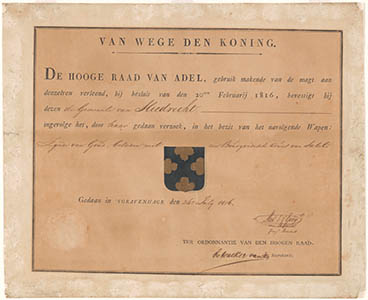 VAN WEGE DEN KONING.
DE HOOGE RAAD VAN ADEL, gebruik makende van de magt aan
denzelven verleend, bij besluit van den 20sten Februarij 1816, bevestigt bij
dezen de Gemeente van Sliedrecht
ingevolge het, door haar gedaan verzoek, in het bezit van het navolgende Wapen:
Gedaan in 'SGRAVENHAGE den 24 July 1816.
TER ORDONNANTIE VAN DEN HOOGEN RAAD.